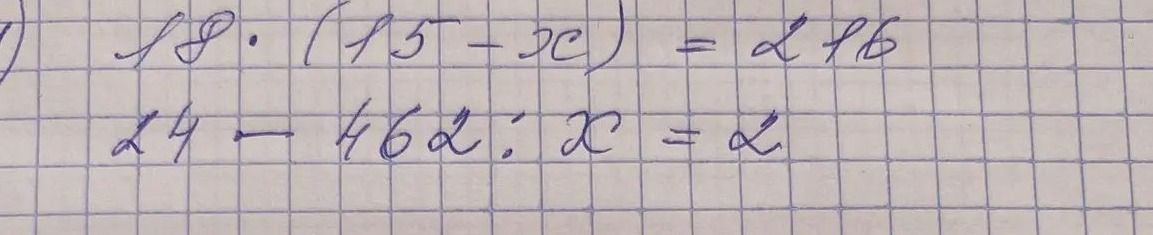 ) 18 · (15 - x) = 216
24 - 462 : x = 2